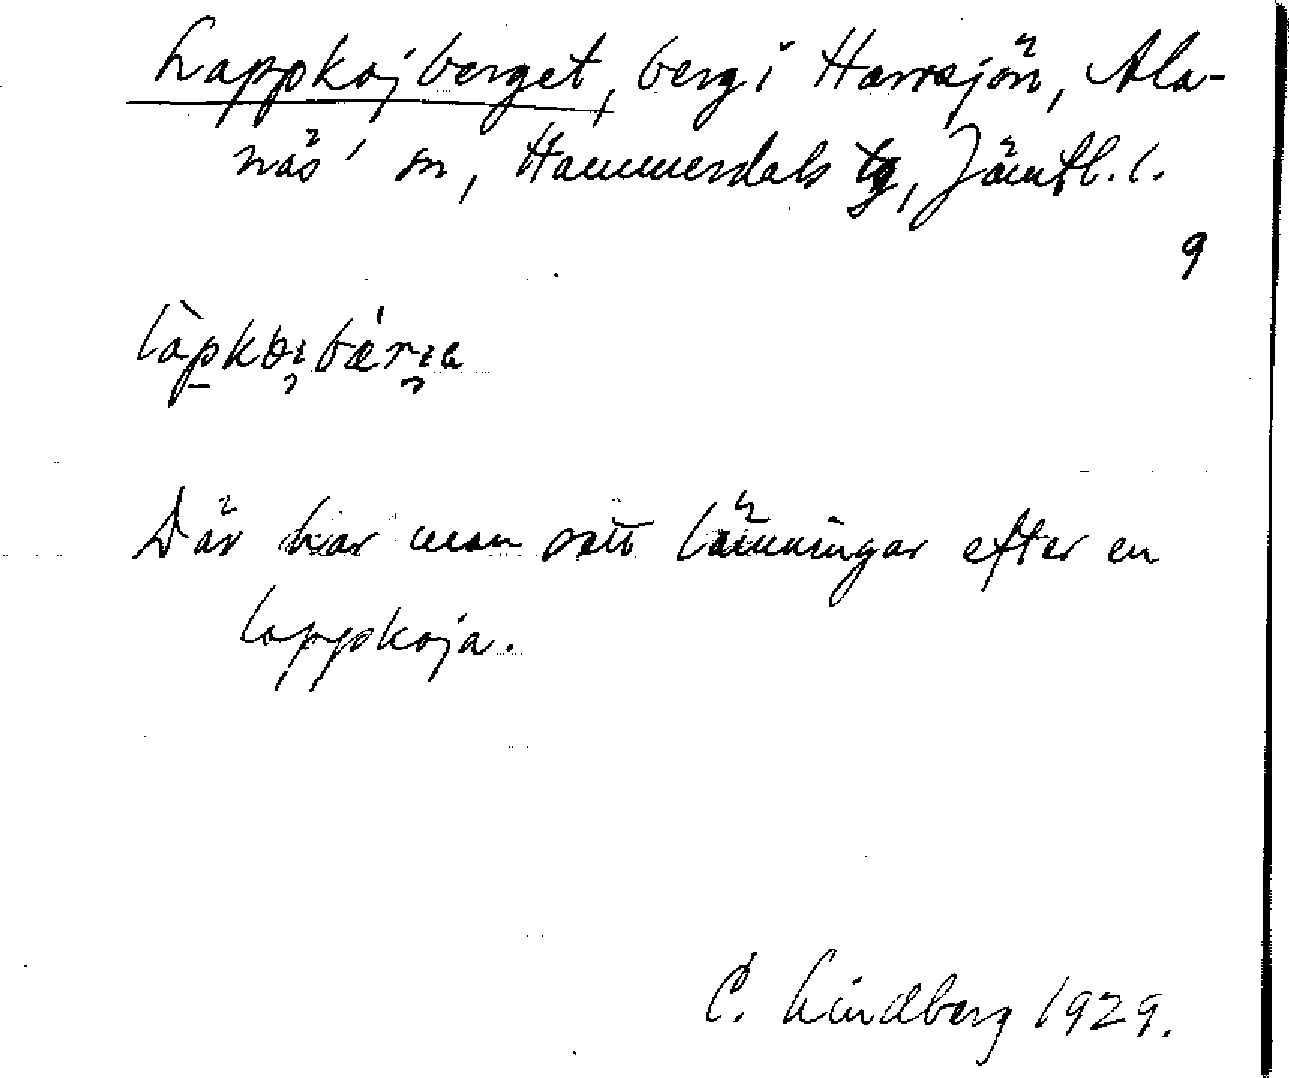 Lappkojberget, berg i Harrsjön, Ala-
näs' sn, Hammerdals tg, Jämtl. l.
9
Där har man sett lämningar efter en
lappkoja.
C. Lindberg 1929.